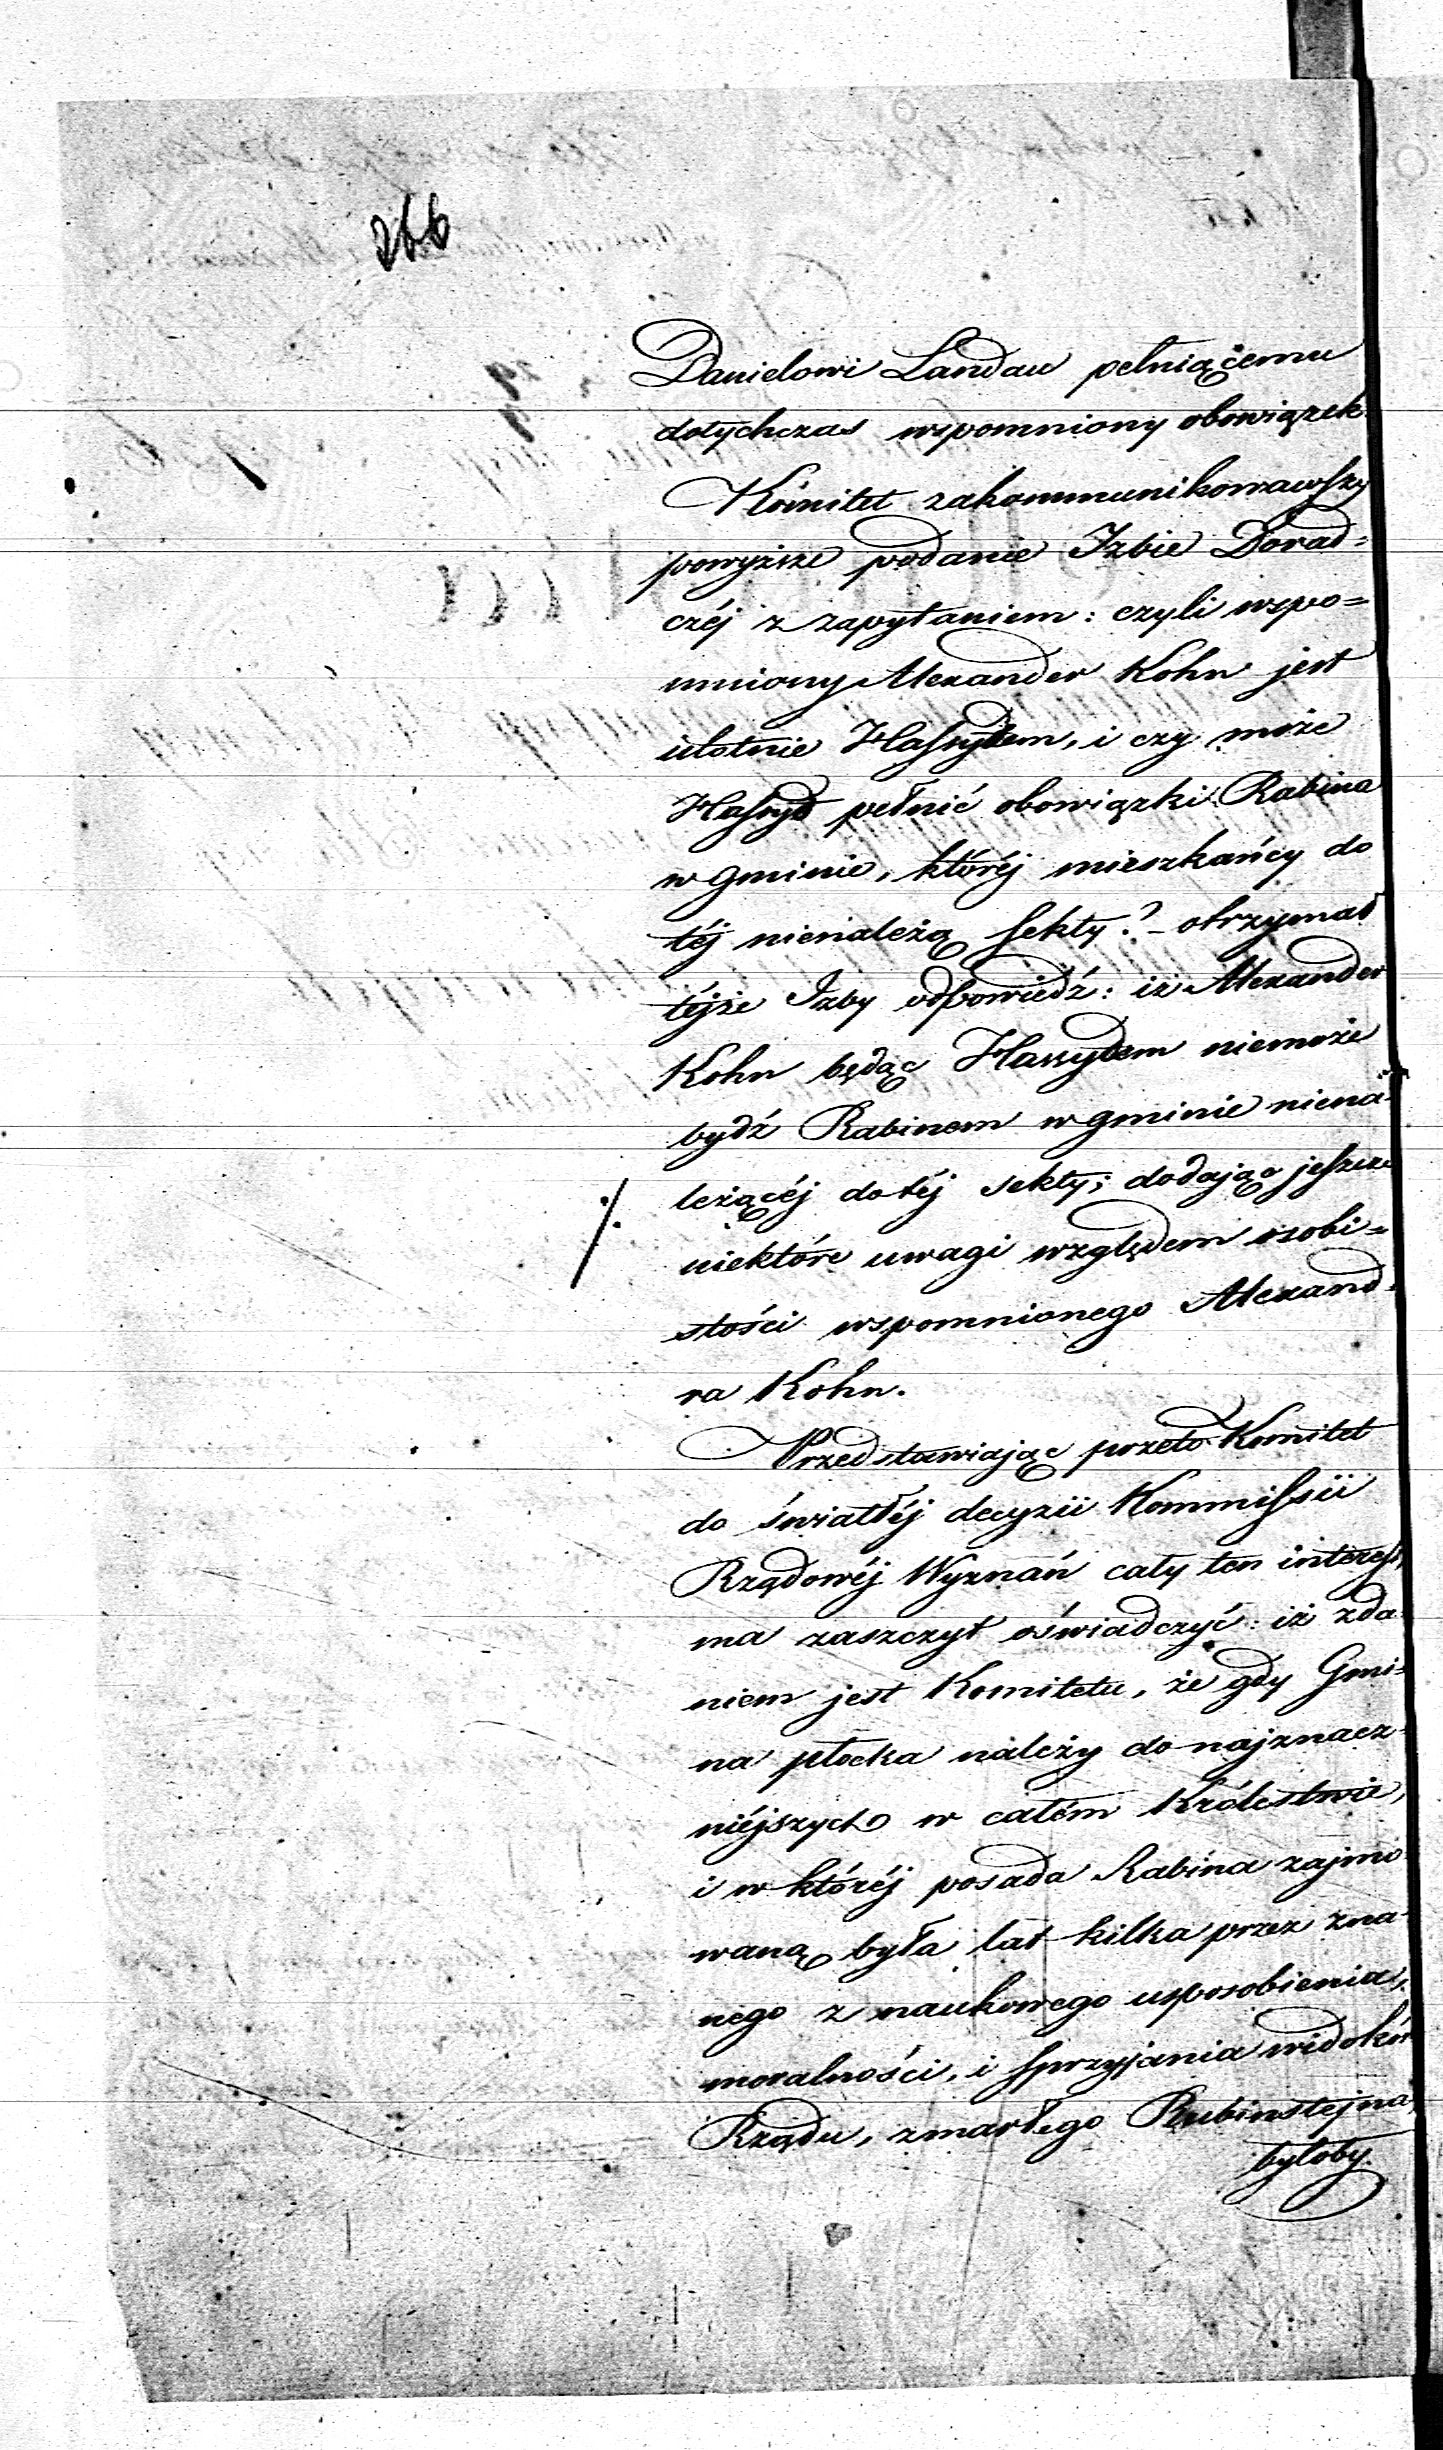 266
Danielowi Landau pełniącemu
dotychczas wspomniony obowiązek
Komitet zakommunikowawszy
powyższe podanie Izbie Dorad=
czéj z zapytaniem: czyli wspo=
mniony Alexander Kohn jest
istotnie Hassydem, i czy może
Hassyd pełnić obowiązki Rabina
w gminie, któréj mieszkańcy do
téj nienależą sekty? - otrzymał
téjże Izby odpowiedź: iż Alexander
Kohn będąc Hassydem niemoże
bydź Rabinem w gminie niena=
leżącéj do téj sekty; dodając jeszcze
niektóre uwagi względem osobi=
stości wspomnionego Alexand=
ra Kohn.
Przedstawiając przeto Komitet
do światłéj decyzii Kommissii
Rządowéj Wyznań cały ten interess,
ma zaszczyt oświadczyć: iż zda=
niem jest Komitetu, że gdy Gmi=
na płocka należy do najznacz=
niéjszych w całém Królestwie,
i w któréj posada Rabina zajmo=
waną była lat kilka przez zna=
nego z naukowego usposobienia,
moralności, i sprzyjania widoków
Rządu, zmarłego Rubinstejna,
byłoby